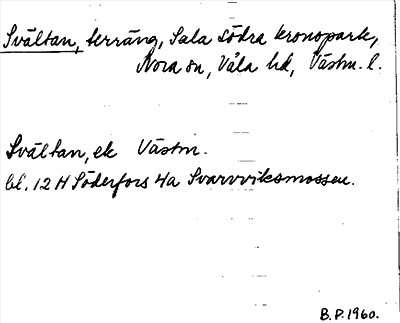 Svältan, terräng, Sala södra kronopark,
Nora sn, Våla hd, Västm. l.
Svältan, ek Västm.
bl. 12 H Söderfors 4a Svarvviksmossen.
B.P. 1960.